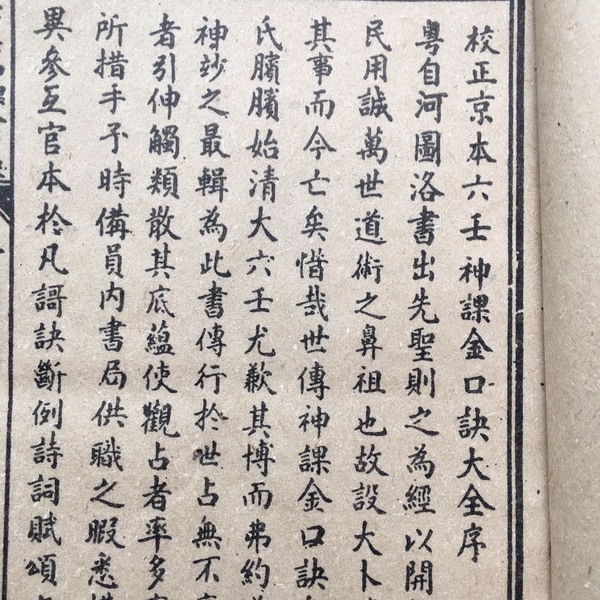 校正京本六壬神課金口訣大全序
粵自河圖洛書出先聖則之為經以開
民用誠萬世道術之鼻祖也故設大卜
其事而今亡矣惜哉世傳神課金口訣
氏臏臏始清大六壬尤歉其博而弗約
神妙之最輯為此書傳行於世占無不
者引伸觸類散其底蘊使觀占者率多
所措手予時備員內書局供職之暇悉
異參互官本於凡謌訣斷例詩詞賦頌